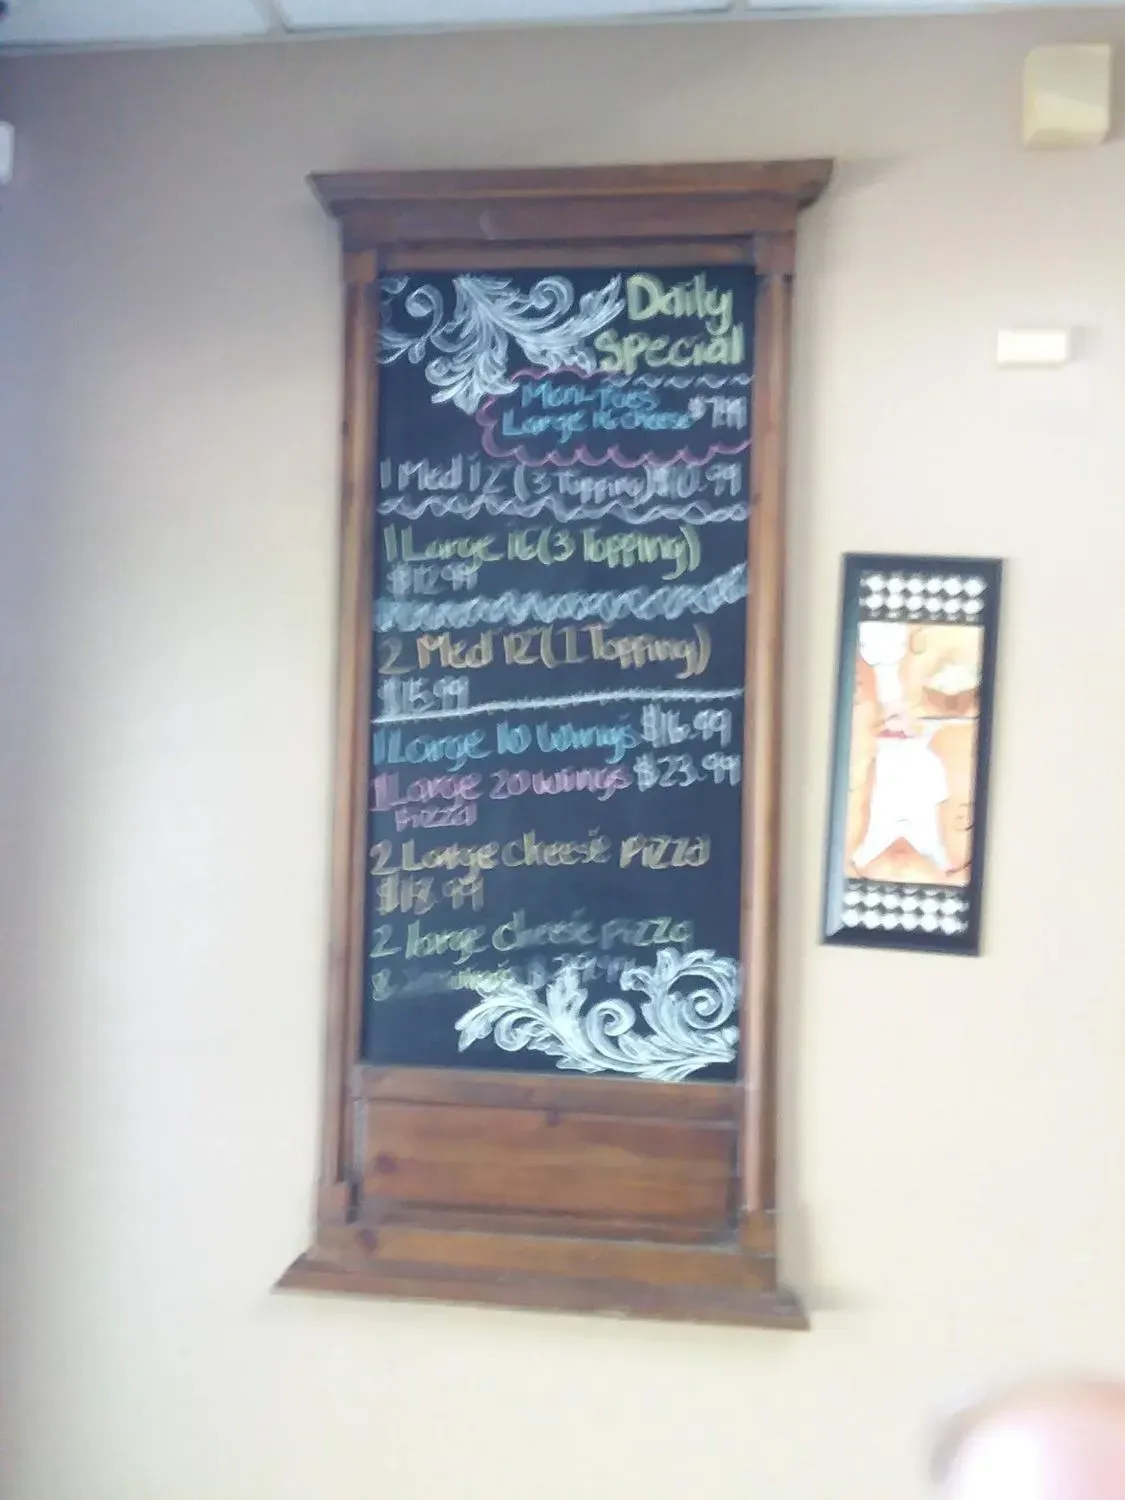 Daily
Special
Mon-Tues
Large 16 cheese $7.99
1 Med 12 (3 Topping) $10.99
1 Large 16 (3 Topping)
$12.99
2 Med 12 (1 Topping)
$15.99
1 Large 10 wings $16.99
1 Large 20 wings $23.99
Pizza
2 Large cheese Pizza
$18.99
2 large cheese pizza
& wings